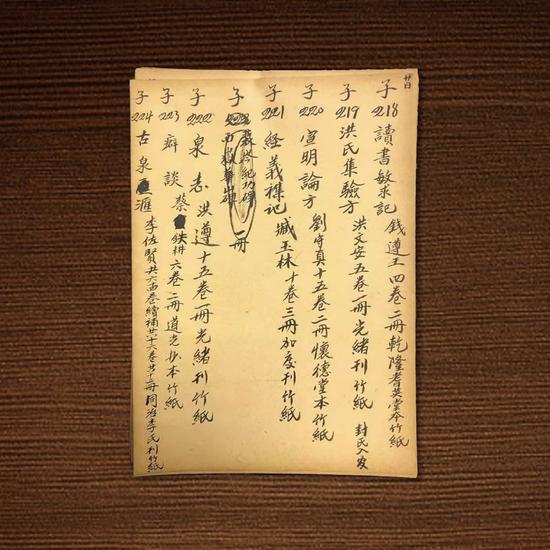 廿日
子218 讀書敏求記 錢遵王 四卷二冊乾隆耆英堂本竹紙
子219 洪氏集驗方 洪文安五卷一冊光緒刊竹紙 封氏入農
子220 宣明論方 劉守真十五卷二冊懷德堂本竹紙
子221 經義襍記 臧玉林十卷三冊加慶刊竹紙
子 一冊
子222 泉志 洪遵十五卷一冊光緒刊竹紙
子223 癖談 蔡 六卷二冊道光 本竹紙
子224 古泉滙 李佐賢共六四卷續補共十六卷共 冊同治李氏刊竹紙